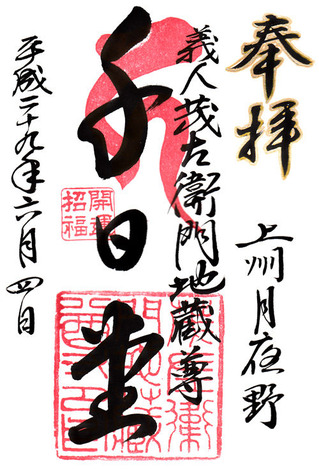 奉拝
上州月夜野
義人茂左衛門地蔵尊
千日堂
開運
招福
平成二十九年六月四日